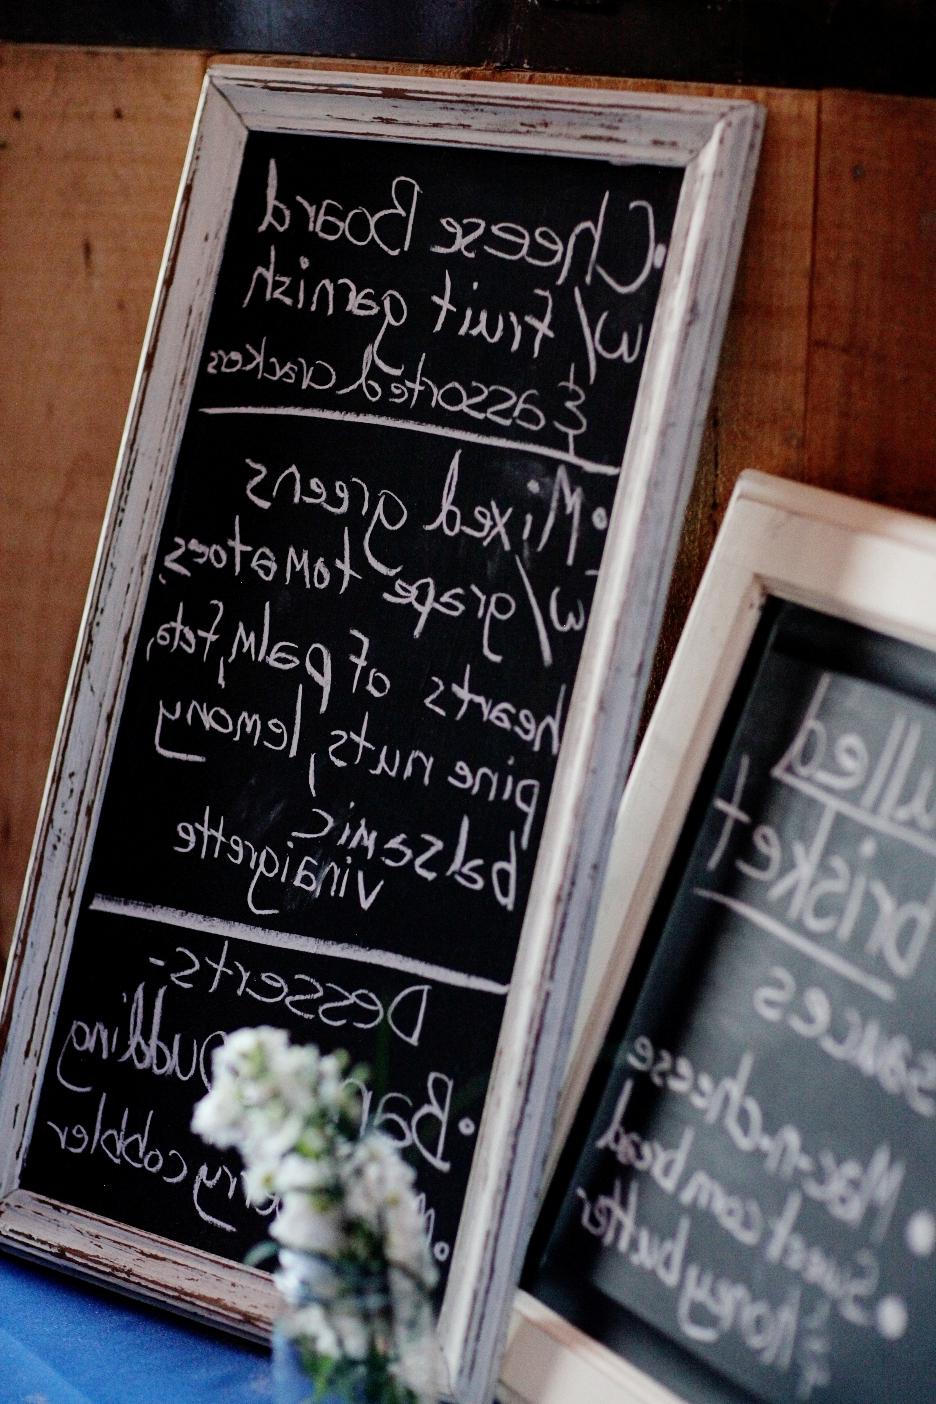 • Cheese Board
w/ fruit garnish
& assorted crackers
• Mixed greens
w/ grape tomatoes,
hearts of palm, feta,
pine nuts, lemony
balsamic
vinaigrette
Desserts-
Pudding
cobbler
brisket
sauces
• Mac-n-cheese
• Sweet corn bread
& honey butter